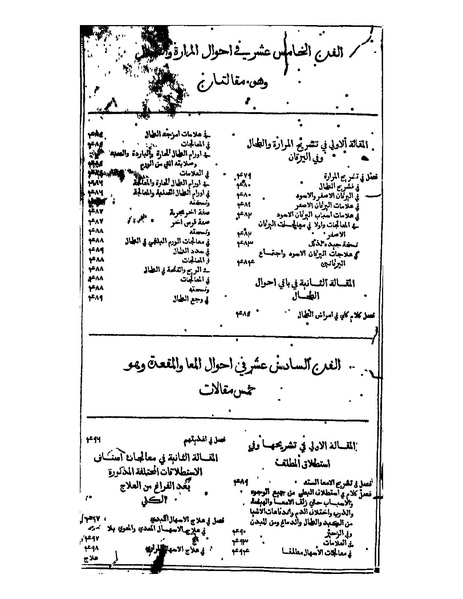 الفن الخامس عشر في احوال المرارة والطحال
وهو مقالتان
المقالة الاولى في تشريح المرارة والطحال
وفي اليرقان
فصل في تشريح المرارة ٤٧٩
في تشريح الطحال ٤٨٠
في اليرقان الاصفر والاسود ٤٨٠
في علامات اليرقان الاصفر ٤٨١
في علامات اسباب اليرقان الاسود ٤٨٢
في المعالجات واولا في معالجات اليرقان
الاصفر
نسخة جيدة
في علاجات اليرقان الاسود واجتماع
اليرقانين
المقالة الثانية في باقي احوال
الطحال
فصل كلام كلي في امراض الطحال ٤٨٥
في علامات امزجة الطحال
في المعالجات
في اورام الطحال الحارة والباردة والصلبة
وصلابته التي من الورم
في العلامات
في اورام الطحال الحارة والمعالجة
في اورام الطحال الصلبة والمعالجة
ونسخته
صفة اخرى مجربة ٤٨٧
صفة قرص اخر ٤٨٧
ونسخته ٤٨٨
في معالجات الورم البلغمي في الطحال ٤٨٨
في سدد الطحال
في المعالجات ٤٨٨
في الريح والنفخة في الطحال ٤٨٨
في المعالجات ٤٨٨
ونسخته
في وجع الطحال ٤٨٩
الفن السادس عشر في احوال المعا والمقعدة وهو
خمس مقالات
المقالة الاولى في تشريحها وفي
استطلاق المطلق
فصل في تشريح الامعا الستة ٤٨٩
فصل كلام في استطلاق البطن من جميع الوجوه
والاسباب حتى زلق الامعا والهيضة
والذرب واختلاف الدم واندفاعات الاشيا
من الكبد والطحال والدماغ ومن البدن
وفي الزحير ٤٩٠
في العلامات ٤٩٣
في معالجات الاسهال مطلقا ٤٩٤
فصل في اغذيتهم ٤٩٦
المقالة الثانية في معالجات اصناف
الاستطلاقات المختلفة المذكورة
بعد الفراغ من العلاج
الكلي
فصل في علاج الاسهال الكبدي
في علاج الاسهال المعدي والمعوي بلا
في علاج الاسهال
علاج